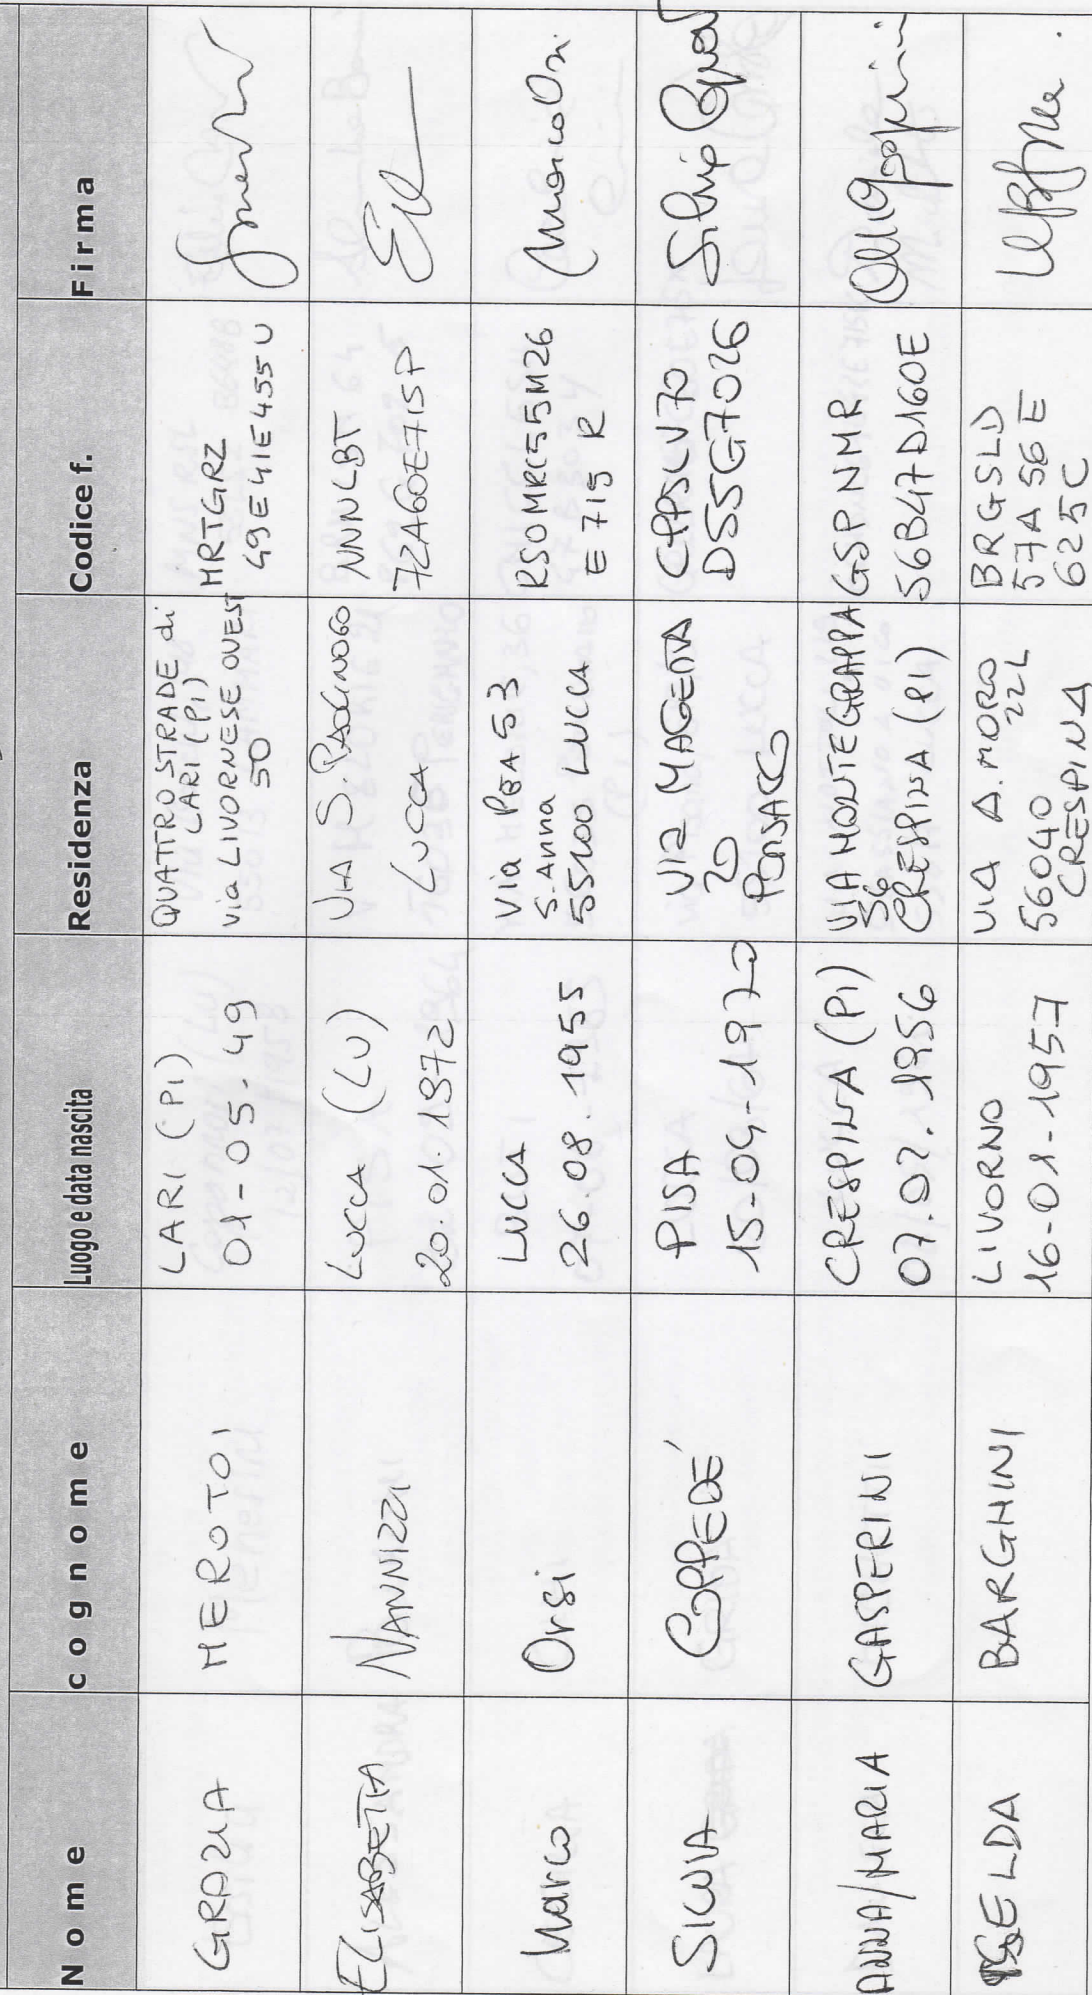 Nome cognome Luogo e data nascita Residenza Codice f. Firma
GRAZIA MEROTOI LARI (PI)
01-05-49
QUATTRO STRADE di
LARI (PI)
via LIVORNESE OVEST
50
MRTGRZ
49E41E455U
ELISABETTA NANNIZZI LUCCA (LU)
20.01.1972
VIA S. PAOLINO 60
LUCCA
NNNLBT
72A60E715P
Marco Orsi LUCCA
26.08.1955
Via PEA 53
S. Anna
55100 LUCCA
RSOMRC55M26
E715R
Marco Orsi
SILVIA COPPEDÉ PISA
15-04-1970
VIA MAGENTA
20
PONSACCO
CPPSLV70
D55G702G
Silvia Coppedé
ANNA/MARIA GASPERINI CRESPINA (PI)
07.02.1956
VIA MONTEGRAPPA
56
CRESPINA (PI)
GSPNMR
56B47D160E
ISELDA BARGHINI LIVORNO
16-01-1957
VIA A. MORO
22L
56040
CRESPINA
BRGSLD
57A56E
625C